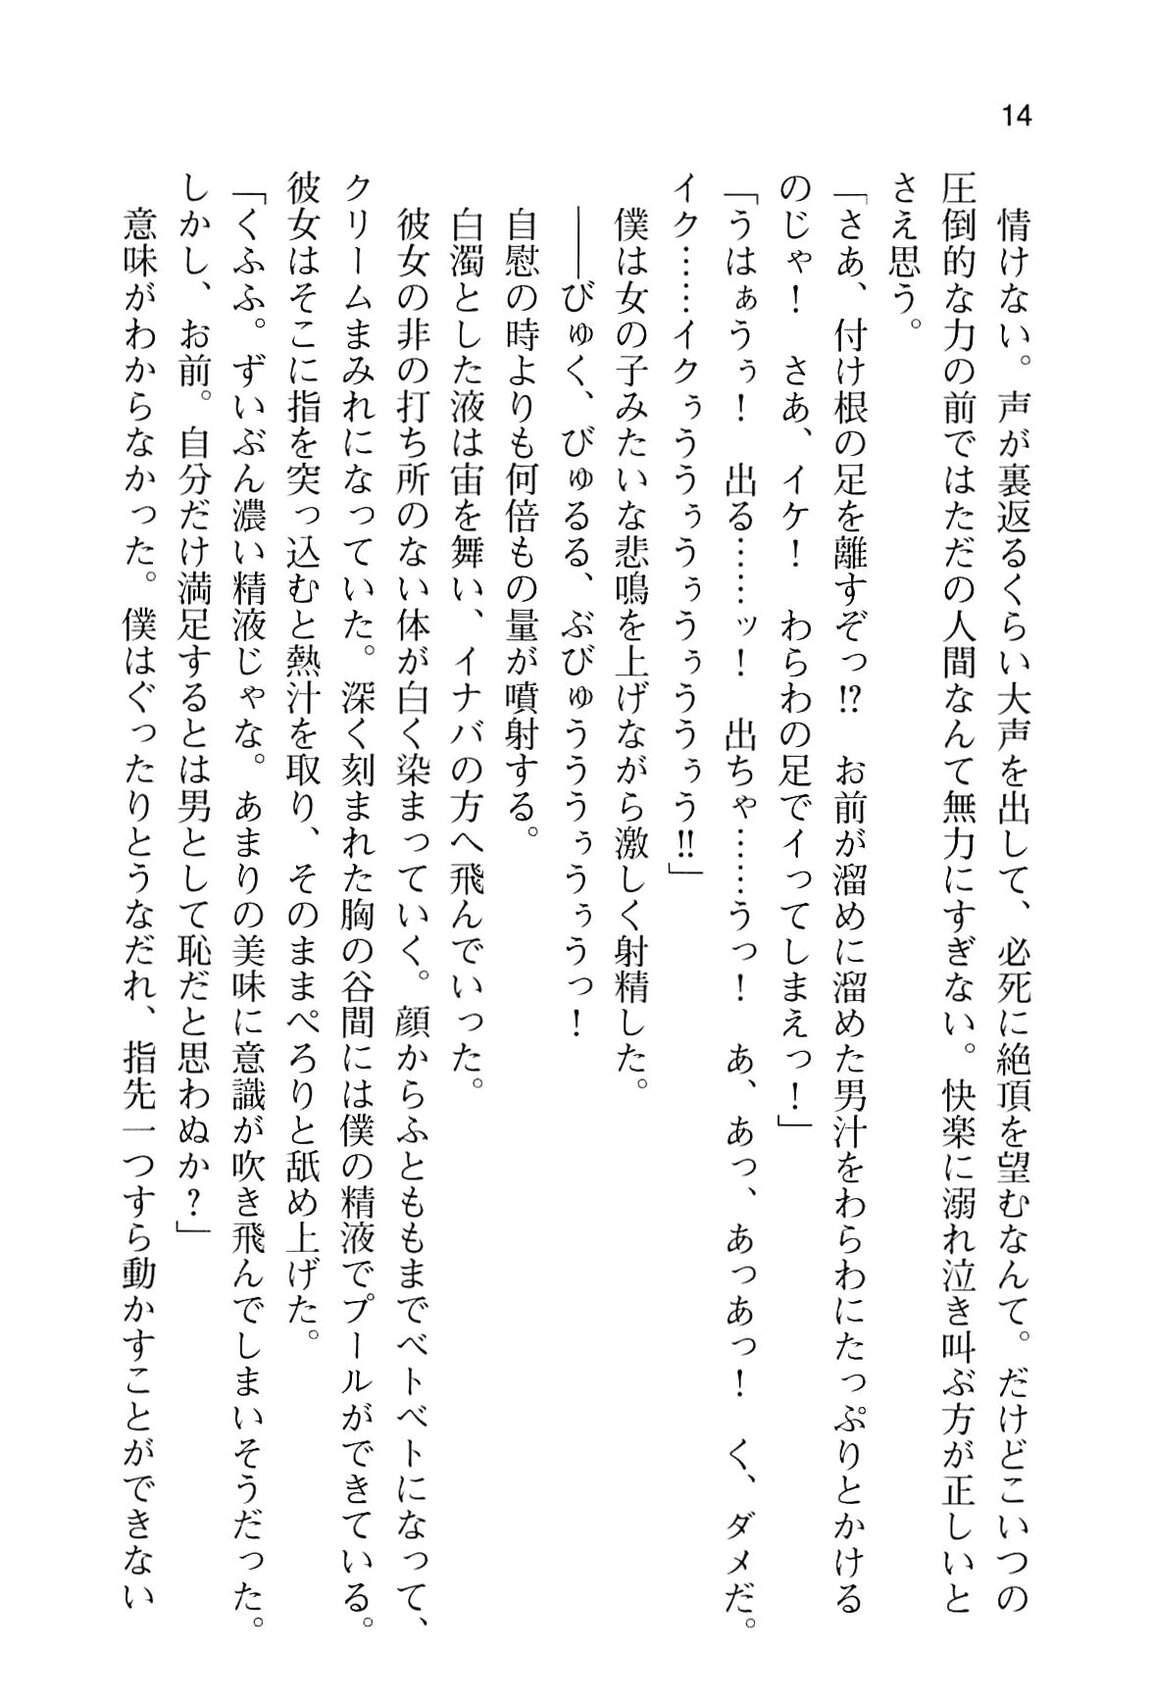 14
情けない。声が裏返るくらい大声を出して、必死に絶頂を望むなんて。だけどこいつの
圧倒的な力の前ではただの人間なんて無力にすぎない。快楽に溺れ泣き叫ぶ方が正しいと
さえ思う。
「さあ、付け根の足を離すぞっ!?　お前が溜めに溜めた男汁をわらわにたっぷりとかける
のじゃ！　さあ、イケ！　わらわの足でイってしまえっ！」
「うはぁうぅ！　出る……ッ！　出ちゃ……うっ！　あ、あっ、あっあっ！　く、ダメだ。
イク……イクぅううぅうぅうぅううぅう!!」
僕は女の子みたいな悲鳴を上げながら激しく射精した。
――びゅく、びゅるる、ぶびゅうううぅうぅうっ！
自慰の時よりも何倍もの量が噴射する。
白濁とした液は宙を舞い、イナバの方へ飛んでいった。
彼女の非の打ち所のない体が白く染まっていく。顔からふとももまでベトベトになって、
クリームまみれになっていた。深く刻まれた胸の谷間には僕の精液でプールができている。
彼女はそこに指を突っ込むと熱汁を取り、そのままぺろりと舐め上げた。
「くふふ。ずいぶん濃い精液じゃな。あまりの美味に意識が吹き飛んでしまいそうだった。
しかし、お前。自分だけ満足するとは男として恥だと思わぬか？」
意味がわからなかった。僕はぐったりとうなだれ、指先一つすら動かすことができない